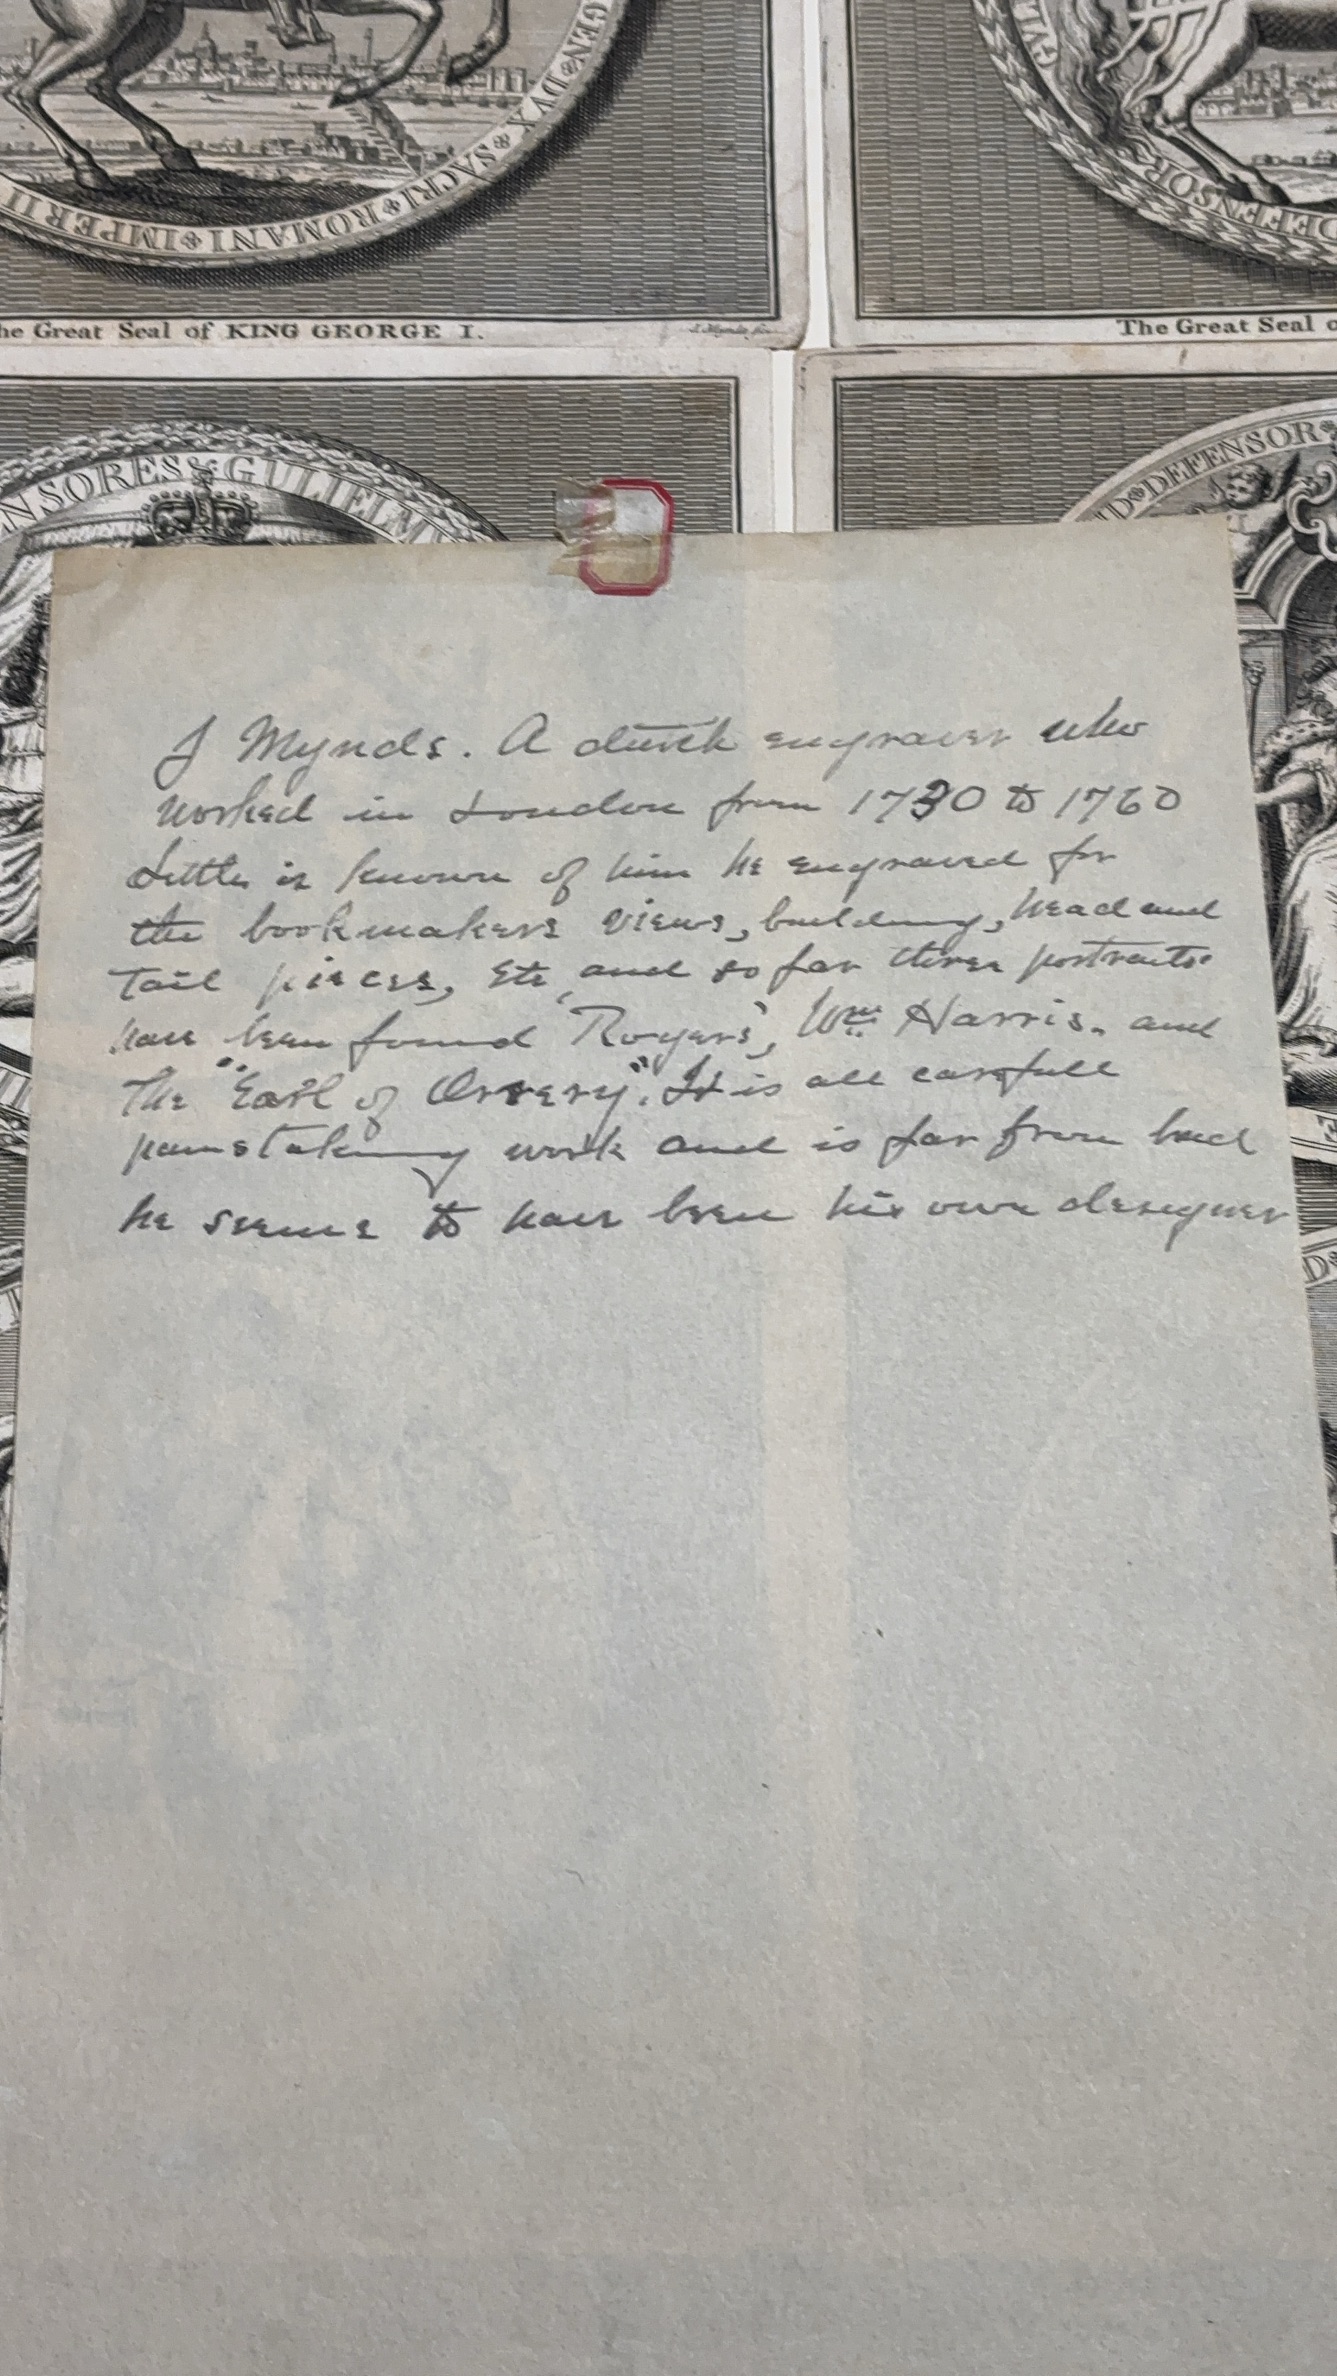 GEN DVX SACRI ROMANI IMPERII
GVL
DEFENSOR
The Great Seal of KING GEORGE I.
The Great Seal o
NSORES GULIELM
D DEFENSOR
J Mynds. A dutch engraver who
worked in London from 1730 to 1760
Little is known of him he engraved for
the bookmakers views, building, head and
Tail pieces, etc, and so far three portraits
have been found 'Rogers', Wm Harris. and
The "Earl of Orrery". It is all carefull
painstaking work and is far from bad
he seems to have been his own designer